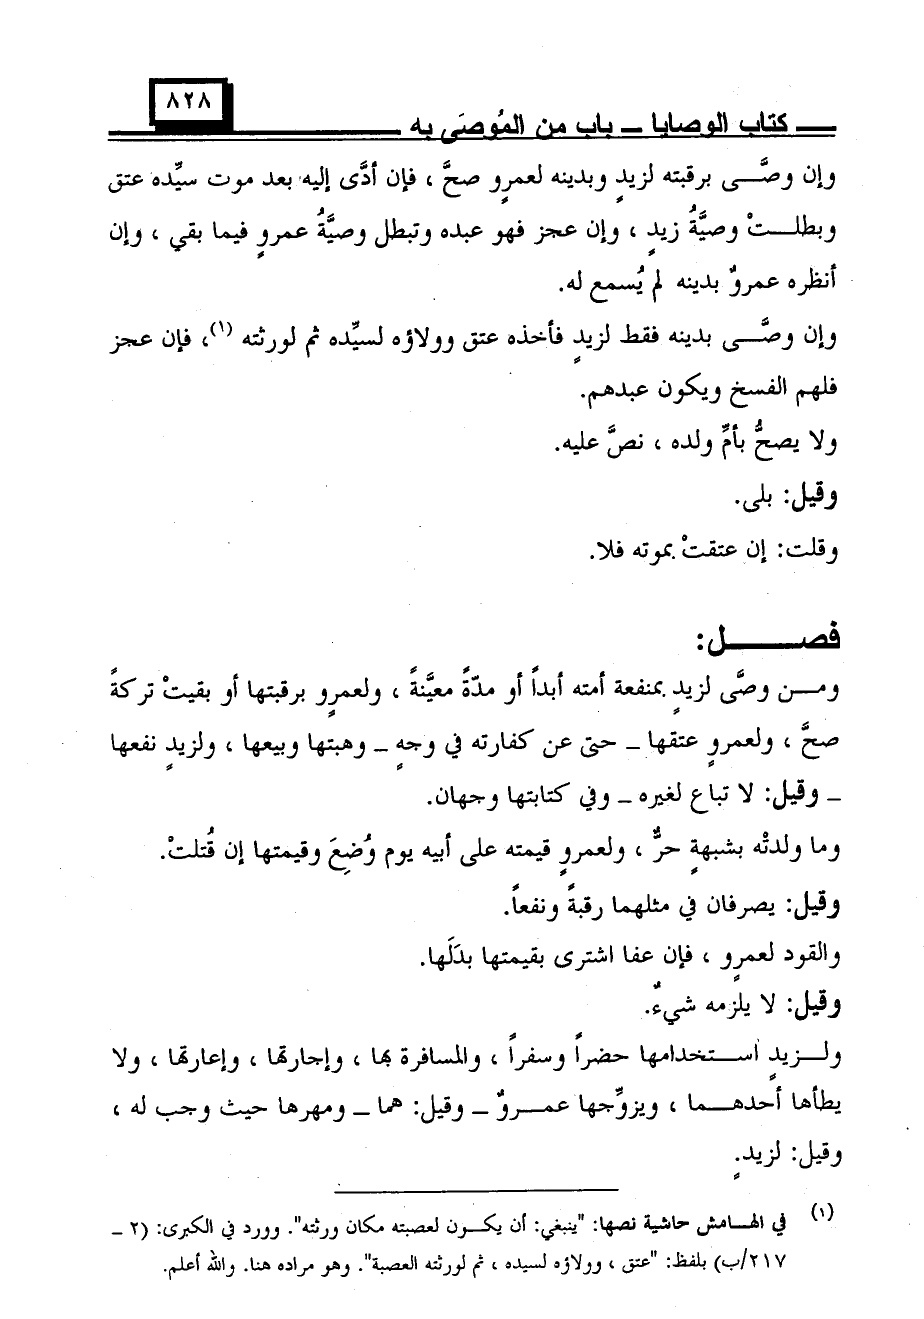 ٨٢٨
كتاب الوصايا ــ باب من المُوصَى به
وإن وصَّى برقبته لزيدٍ وبدينه لعمرٍو صحَّ ، فإن أدَّى إليه بعد موت سيِّده عتق
وبطلتْ وصيَّةُ زيدٍ ، وإن عجز فهو عبده وتبطل وصيَّةُ عمرٍو فيما بقي ، وإن
أنظره عمروٌ بدينه لم يُسمع له.
وإن وصَّى بدينه فقط لزيدٍ فأخذه عتق وولاؤه لسيِّده ثم لورثته (١)، فإن عجز
فلهم الفسخ ويكون عبدهم.
ولا يصحُّ بأمِّ ولده ، نصَّ عليه.
وقيل: بلى.
وقلت: إن عتقتْ بموته فلا.
فصل:
ومن وصَّى لزيدٍ بمنفعة أمته أبداً أو مدّةً معيَّنةً ، ولعمرٍو برقبتها أو بقيتْ تركةً
صحَّ ، ولعمرٍو عتقها ــ حتى عن كفارته في وجهٍ ــ وهبتها وبيعها ، ولزيدٍ نفعها
ــ وقيل: لا تباع لغيره ــ وفي كتابتها وجهان.
وما ولدتْه بشبهةٍ حرٌّ ، ولعمرٍو قيمته على أبيه يوم وُضِعَ وقيمتها إن قُتلتْ.
وقيل: يصرفان في مثلهما رقبةً ونفعاً.
والقود لعمرٍو ، فإن عفا اشترى بقيمتها بدَلَها.
وقيل: لا يلزمه شيءٌ.
ولزيدٍ استخدامها حضراً وسفراً ، والمسافرة بها ، وإجارتها ، وإعارتها ، ولا
يطأها أحدهما ، ويزوِّجها عمروٌ ــ وقيل: هما ــ ومهرها حيث وجب له ،
وقيل: لزيدٍ.
(١) في الهامش حاشية نصها: "ينبغي: أن يكون لعصبته مكان ورثته". وورد في الكبرى: (٢ ــ
٢١٧/ب) بلفظ: "عتق ، وولاؤه لسيده ، ثم لورثته العصبة". وهو مراده هنا. والله أعلم.